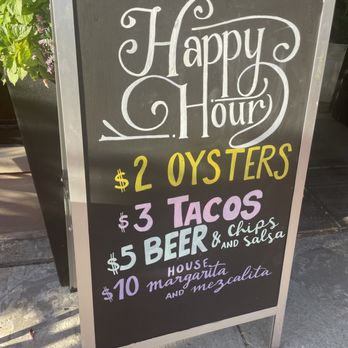 Happy
Hour
$2 OYSTERS
$3 TACOS
$5 BEER & chips AND salsa
HOUSE
$10 margarita
AND mezcalita